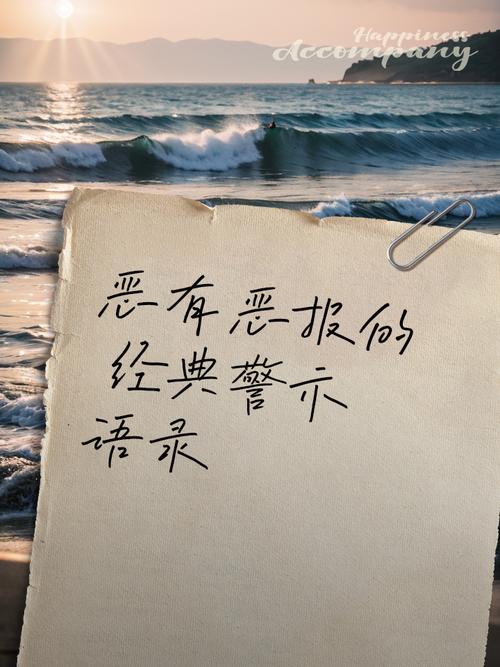 Happiness
Accompany
恶有恶报的
经典警示
语录